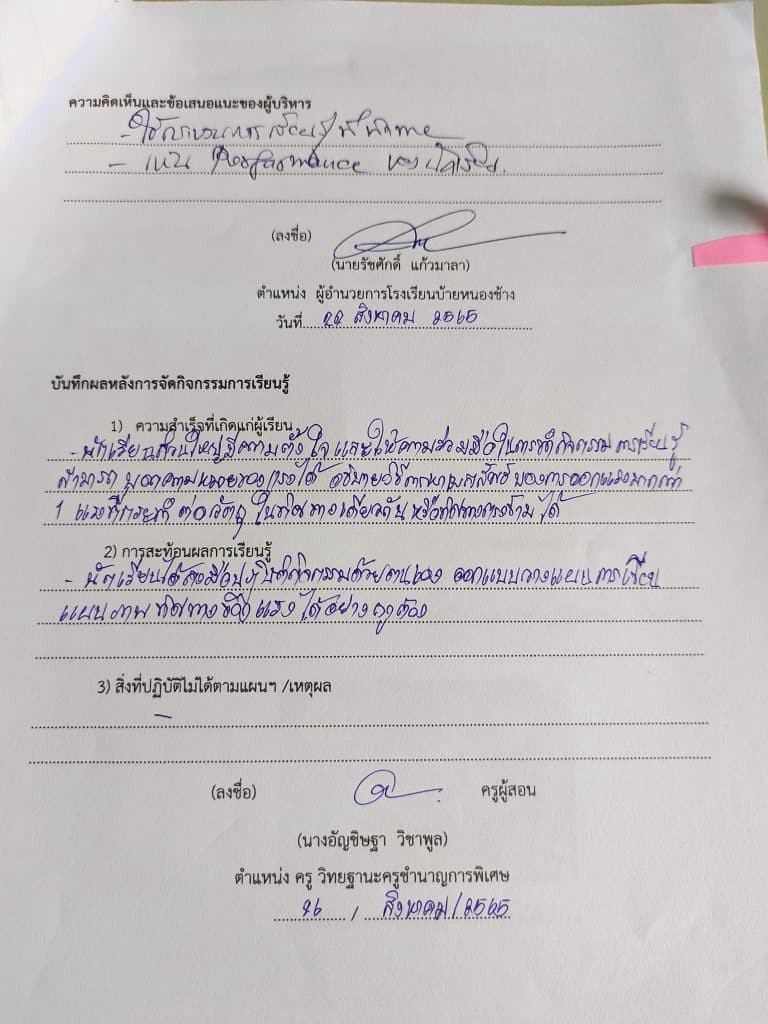 ความคิดเห็นและข้อเสนอแนะของผู้บริหาร
- ใช้กระบวนการเรียนรู้ที่
- เน้น Performance ของนักเรียน.
(ลงชื่อ)
(นายรัชศักดิ์ แก้วมาลา)
ตำแหน่ง ผู้อำนวยการโรงเรียนบ้ายหนองช้าง
วันที่ 22 สิงหาคม 2565
บันทึกผลหลังการจัดกิจกรรมการเรียนรู้
1) ความสำเร็จที่เกิดแก่ผู้เรียน
- นักเรียนส่วนใหญ่มีความตั้งใจและให้ความร่วมมือในการทำกิจกรรมการเรียนรู้
สามารถ บอกความหมายของแรงได้ อธิบายวิธีการหาแรงลัพธ์ของการออกแรงมากกว่า
1 แรงที่กระทำ ต่อวัตถุ ในทิศทางเดียวกัน หรือทิศทางตรงข้ามได้
2) การสะท้อนผลการเรียนรู้
- นักเรียนได้ลงมือปฏิบัติกิจกรรมด้วยตนเอง ออกแบบวางแผนการเขียน
แผนภาพ ทิศทางของแรง ได้อย่างถูกต้อง
3) สิ่งที่ปฏิบัติไม่ได้ตามแผนฯ /เหตุผล
-
(ลงชื่อ) ครูผู้สอน
(นางอัญชิษฐา วิชาพูล)
ตำแหน่ง ครู วิทยฐานะครูชำนาญการพิเศษ
16 / สิงหาคม / 2565